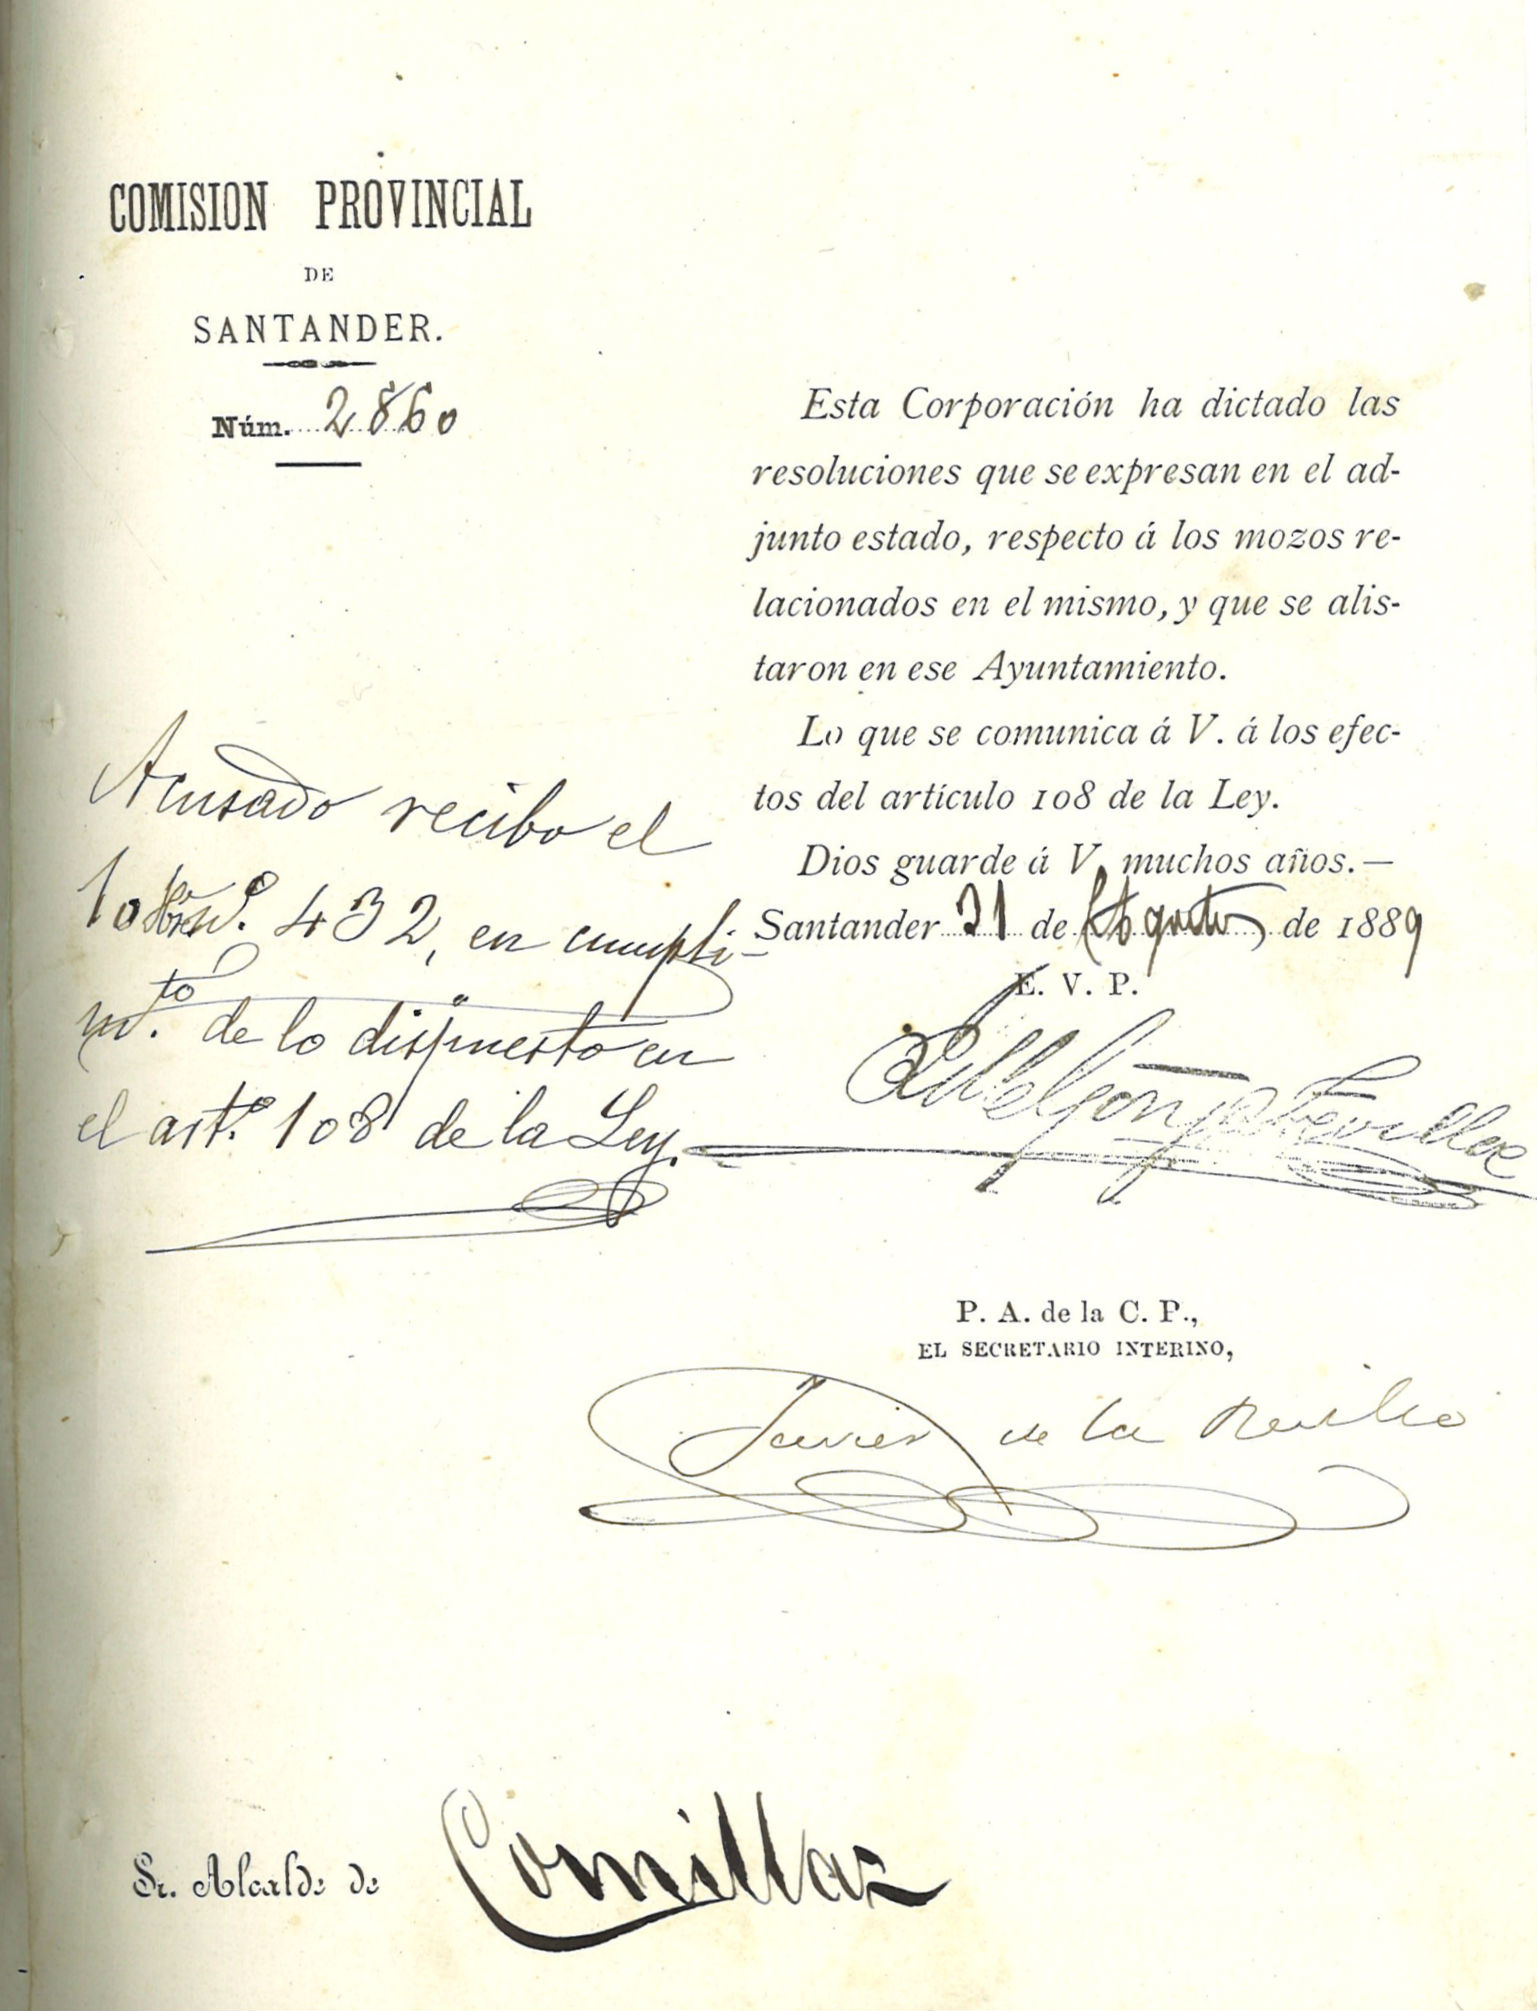 COMISION PROVINCIAL
DE
SANTANDER.
Núm. 2860
Esta Corporación ha dictado las
resoluciones que se expresan en el ad-
junto estado, respecto á los mozos re-
lacionados en el mismo, y que se alis-
taron en ese Ayuntamiento.
Lo que se comunica á V. á los efec-
tos del artículo 108 de la Ley.
Dios guarde á V. muchos años.—
Santander 21 de Agosto de 1889
E. V. P.
Acusado recibo el
10 432, en cumpli-
mto. de lo dispuesto en
el arto. 108 de la Ley.
P. A. de la C. P.,
EL SECRETARIO INTERINO,
Javier de la Revilla
Sr. Alcalde de Comillas